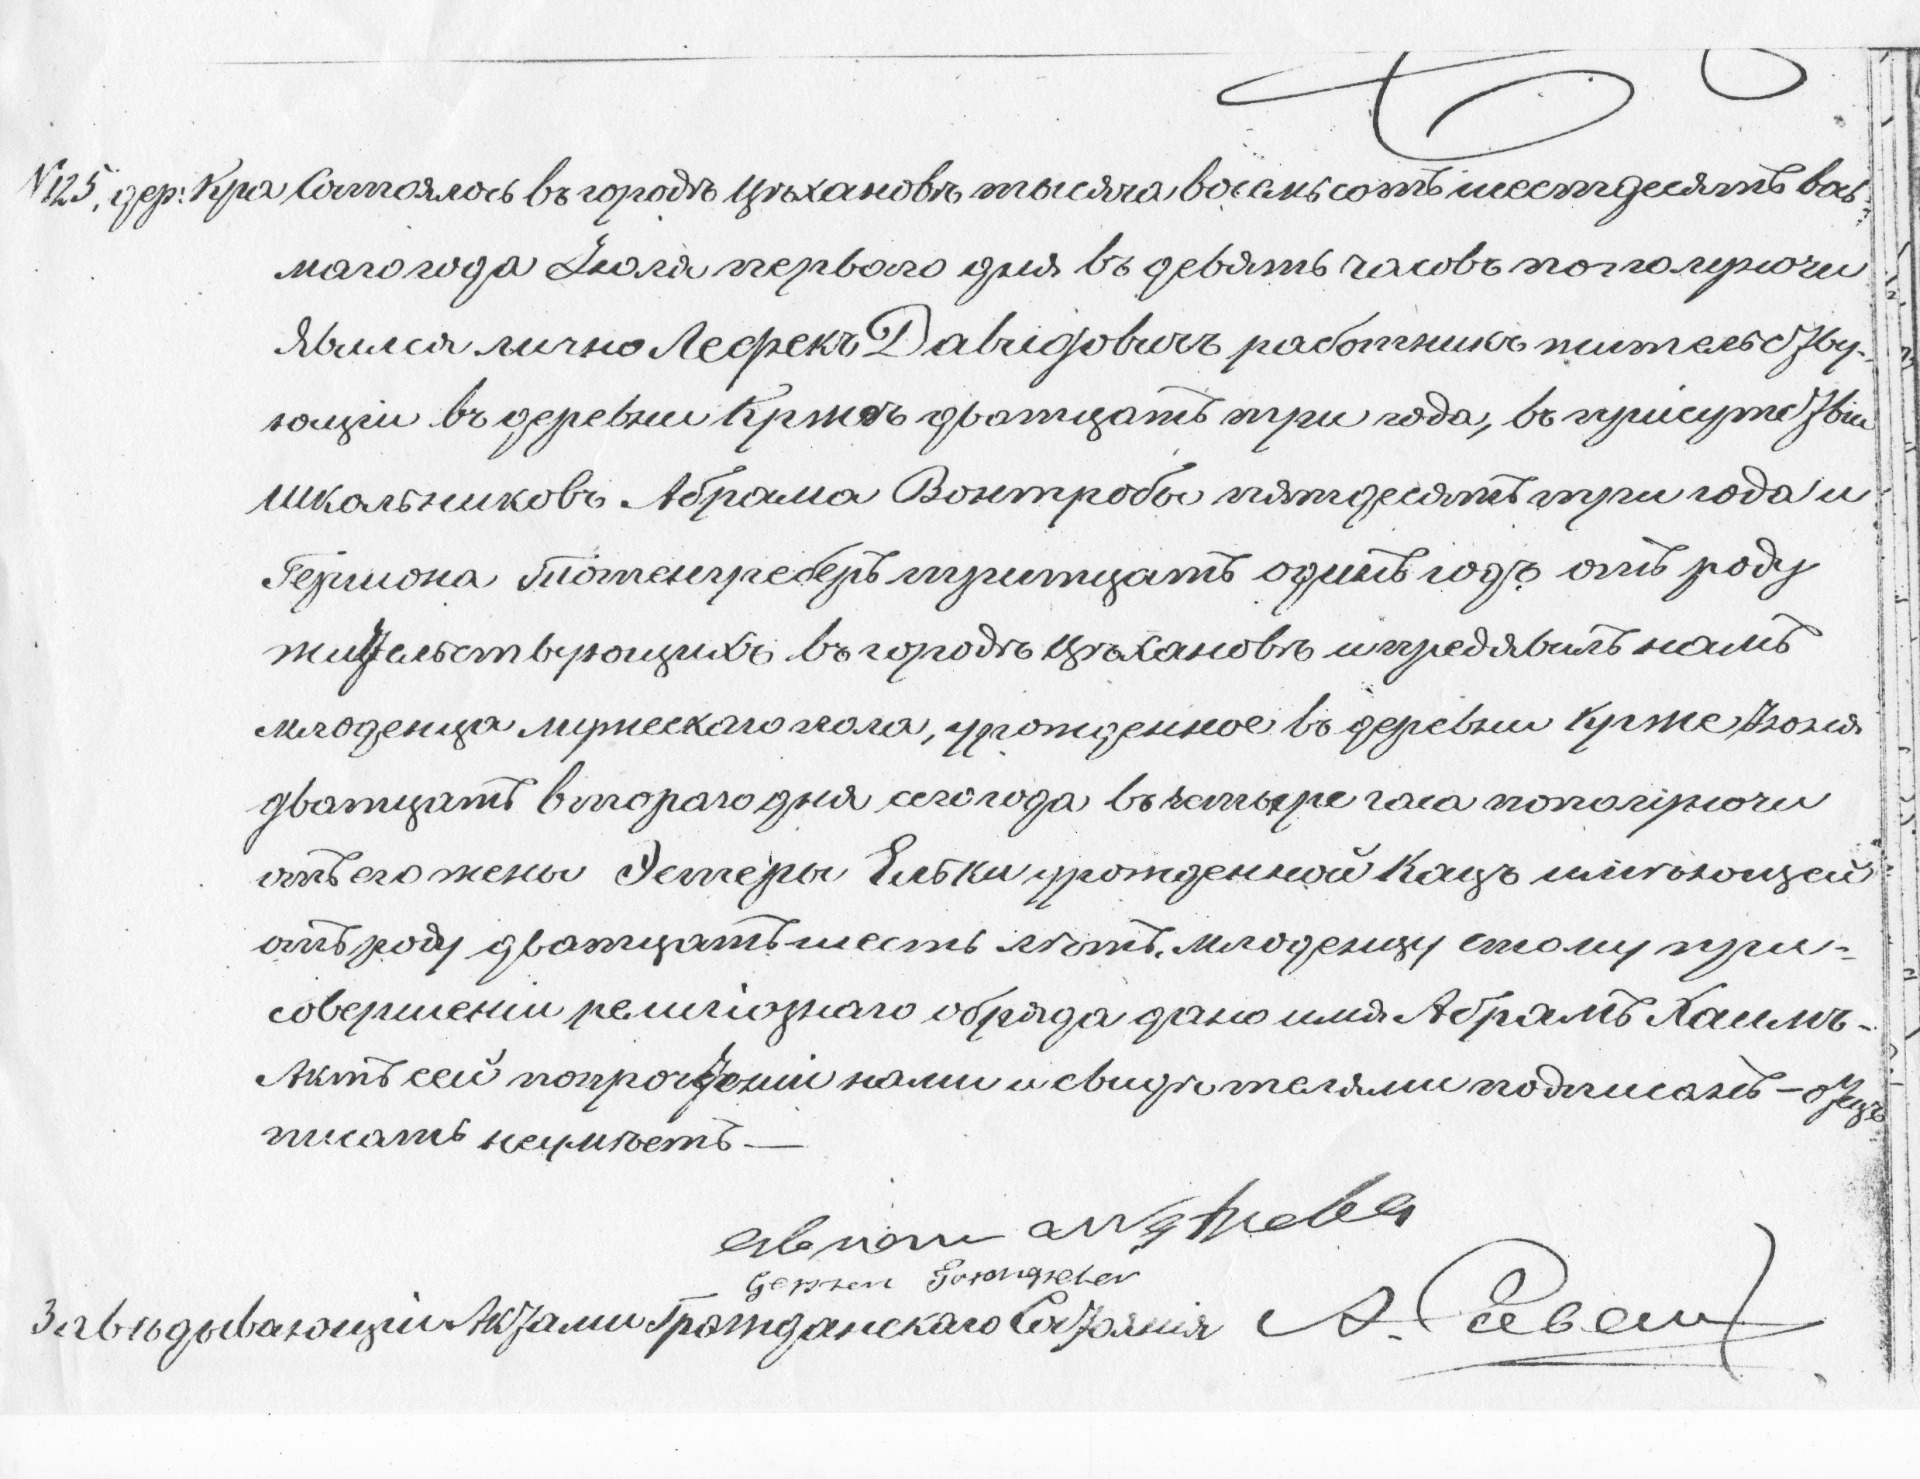 №125. дер: Кра Состоялось въ городѣ Цѣхановѣ тысяча восемьсотъ шестдесятъ вось-
маго года Іюля перваго дня въ девять часовъ пополуночи
явился лично Лефекъ Давидовичъ работникъ жительству-
ющіи въ деревни Крже дватцать три года, въ присутствіи
школьниковъ Абрама Вонтробы пятдесятъ три года и
Гершона Тотенгреберъ тритцать одинъ годъ отъ роду
жительствующихъ въ городѣ Цѣхановѣ и предявилъ намъ
младенца мужескаго пола, урожденное въ деревни Крже Іюня
дватцать втораго дня сего года въ четыре часа пополуночи
отъ его жены Эстеры Ельки урожденной Кацъ имѣющей
отъ роду дватцать шесть лѣтъ. Младенцу етому при-
совершеніи религіознаго обряда дано имя Абрамъ Хаимъ-
Актъ сей попрочтеніи нами и свидѣтелями подписанъ – Отецъ
писать неумѣетъ —
Завѣдывающіи Актами Гражданскаго Состоянія А.